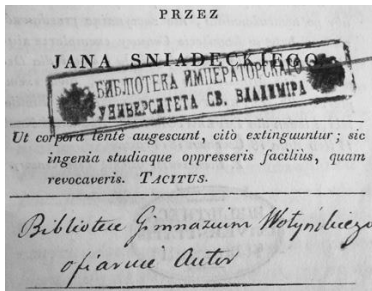 PRZEZ
JANA SNIADECKIEGO
БИБЛІОТЕКА ИМПЕРАТОРСКАГО
УНИВЕРСИТЕТА СВ. ВЛАДИМІРА
Ut corpora lentè augescunt, citò extinguuntur; sic
ingenia studiaque oppresseris faciliùs, quam
revocaveris. TACITUS.
Bibliotece Gimnazium Wołyńskiego
ofiaruie Autor